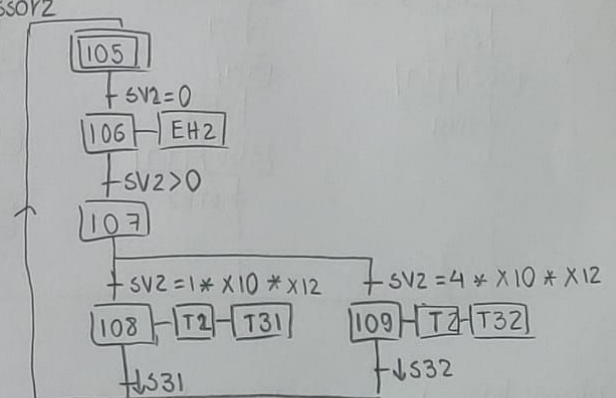 105
SV2=0
106 EH2
SV2>0
107
SV2=1* X10 * X12 SV2=4 * X10 * X12
108 T2 T31 109 T2 T32
↓S31 ↓S32